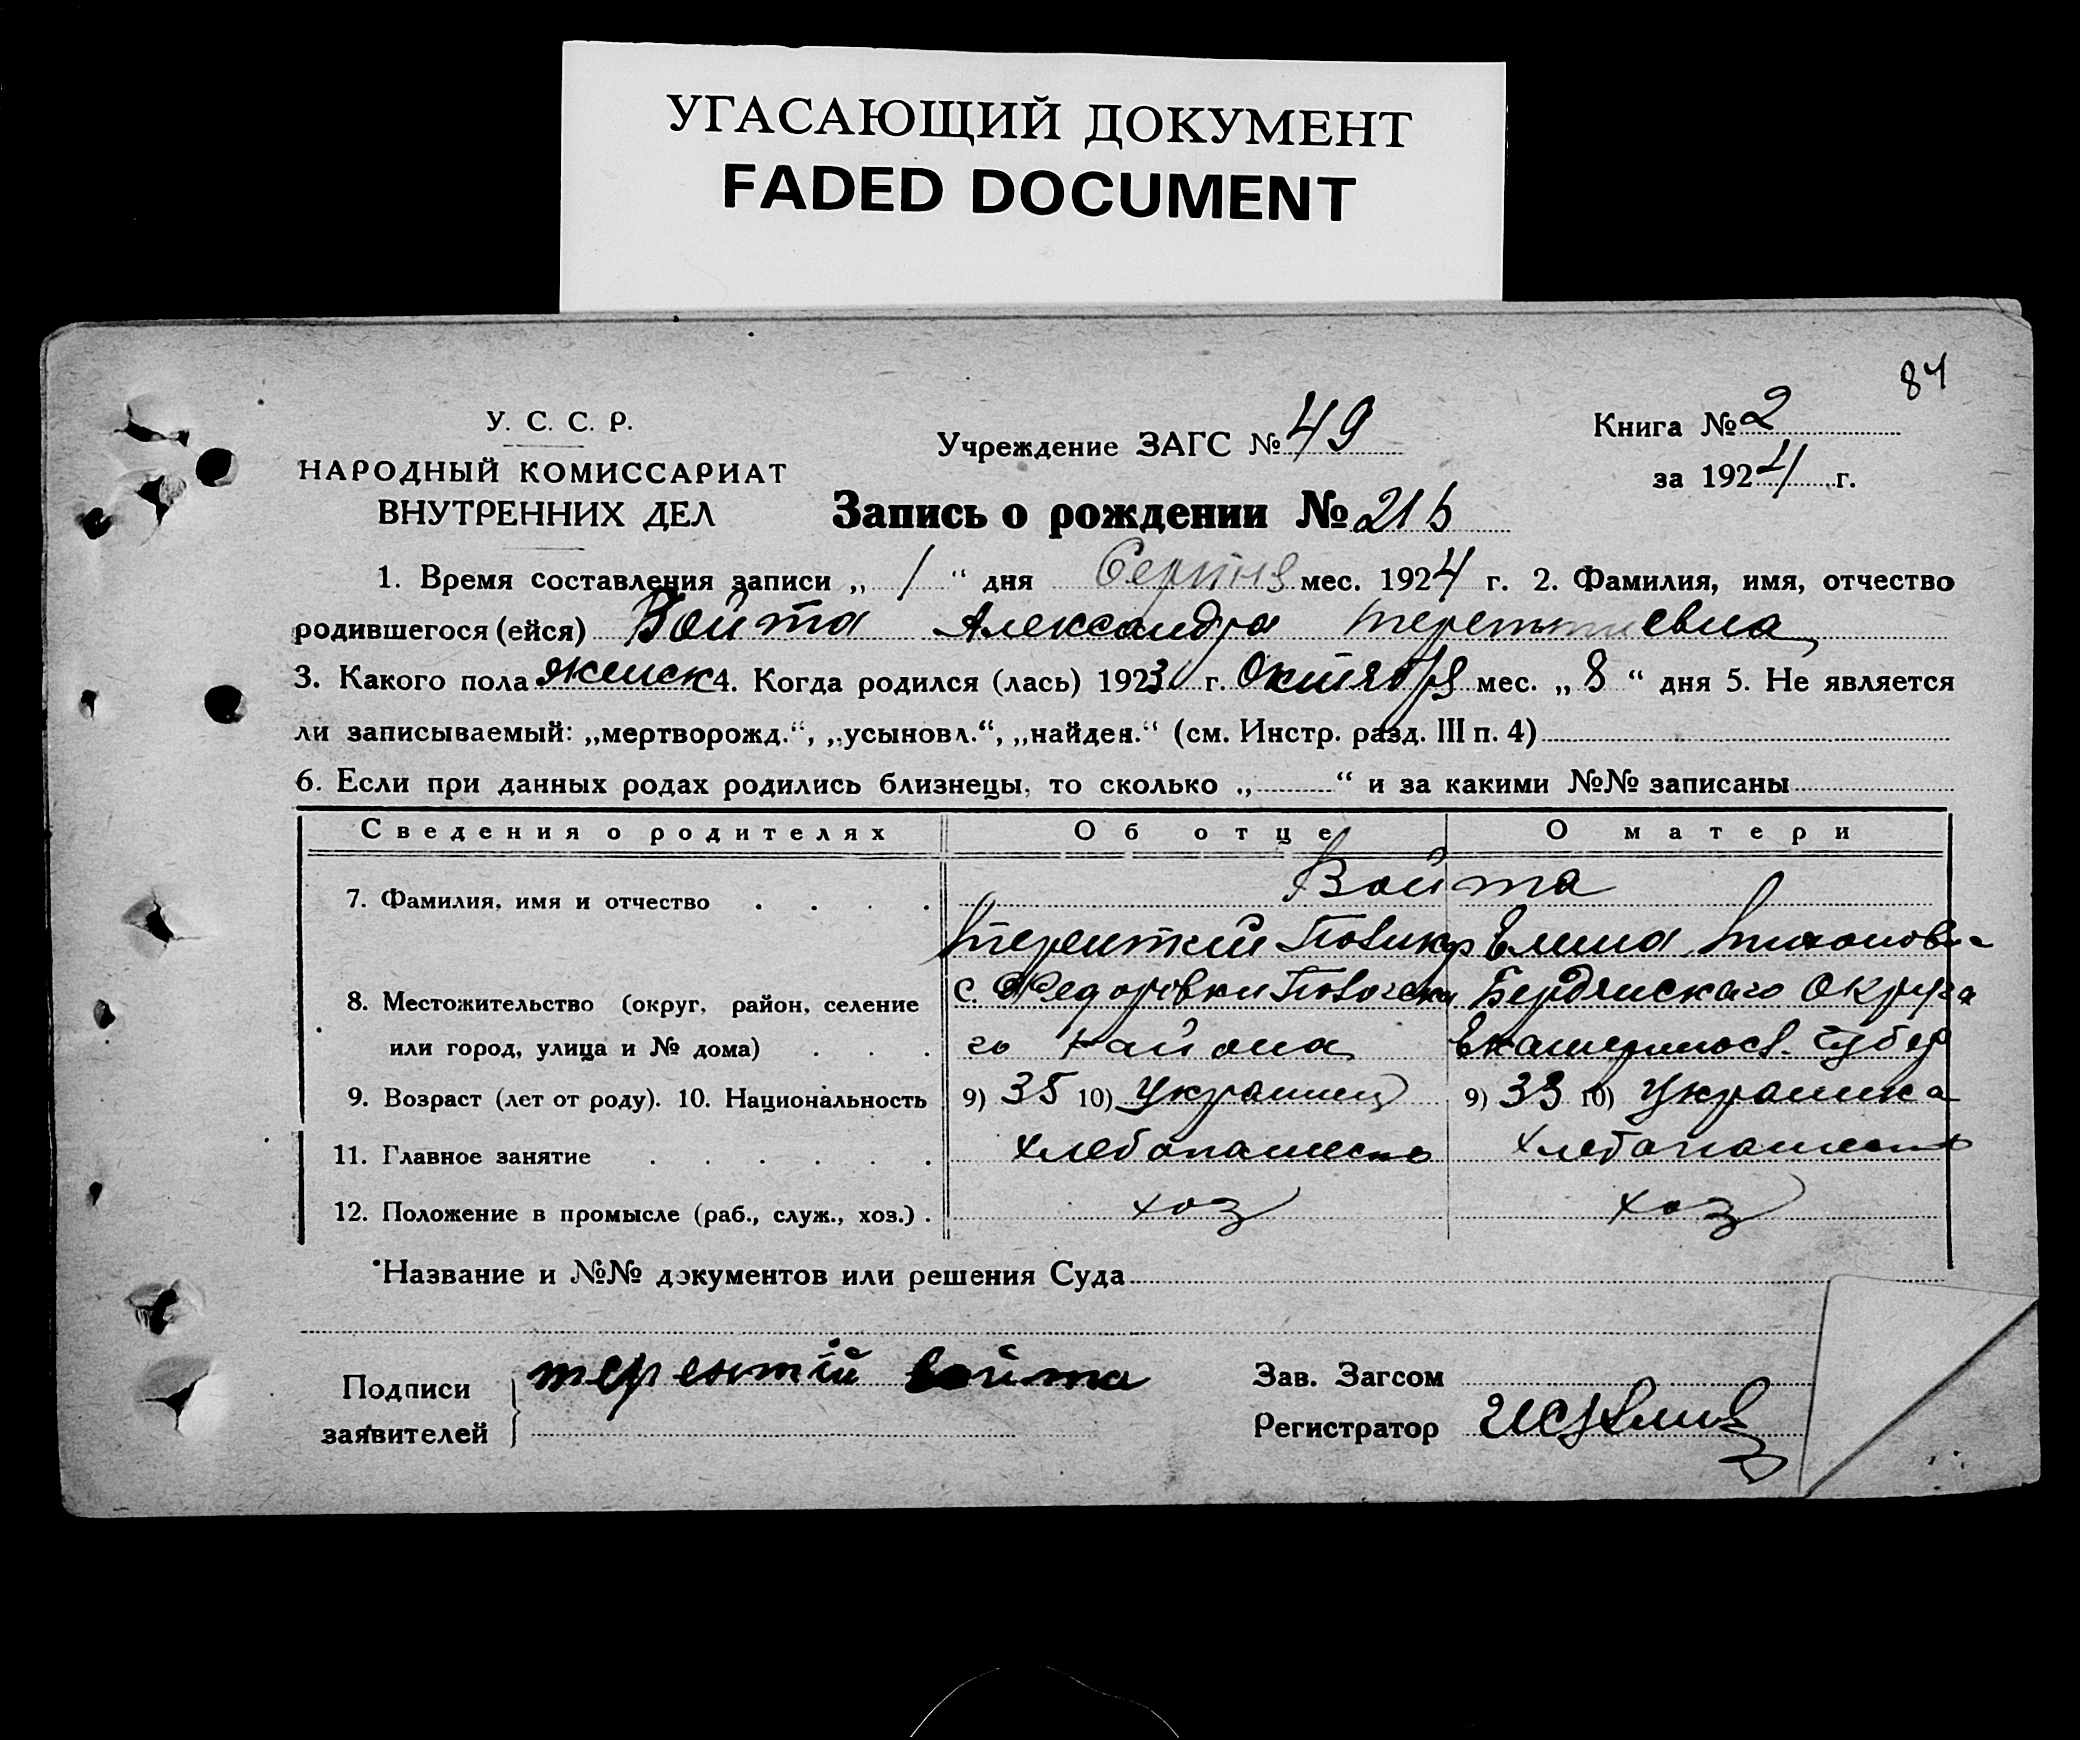 УГАСАЮЩИЙ ДОКУМЕНТ
FADED DOCUMENT
84
У. С. С. Р.
НАРОДНЫЙ КОМИССАРИАТ
ВНУТРЕННИХ ДЕЛ
Учреждение ЗАГС № 49
Книга № 2
за 1924 г.
Запись о рождении № 216
1. Время составления записи „ 1 “ дня Серпня мес. 1924 г. 2. Фамилия, имя, отчество
родившегося (ейся) Войта Александра Терентиевна
3. Какого пола женск 4. Когда родился (лась) 1923 г. Октября мес. „ 8 “ дня 5. Не является
ли записываемый: „мертворожд.“, „усыновл.“, „найден.“ (см. Инстр. разд. III п. 4)
6. Если при данных родах родились близнецы, то сколько „ “ и за какими №№ записаны
Сведения о родителях Об отце О матери
7. Фамилия, имя и отчество Войта
Терентий Елена Тихонов
8. Местожительство (округ, район, селение с. Федоровки Бердянскаго Округа
или город, улица и № дома) го Района Екатеринос. Губер
9. Возраст (лет от роду). 10. Национальность 9) 35 10) Украинец 9) 33 10) Украинка
11. Главное занятие хлебопашест хлебопашест
12. Положение в промысле (раб., служ., хоз.) хоз хоз
Название и №№ документов или решения Суда
Подписи терентій войта Зав. Загсом
заявителей Регистратор